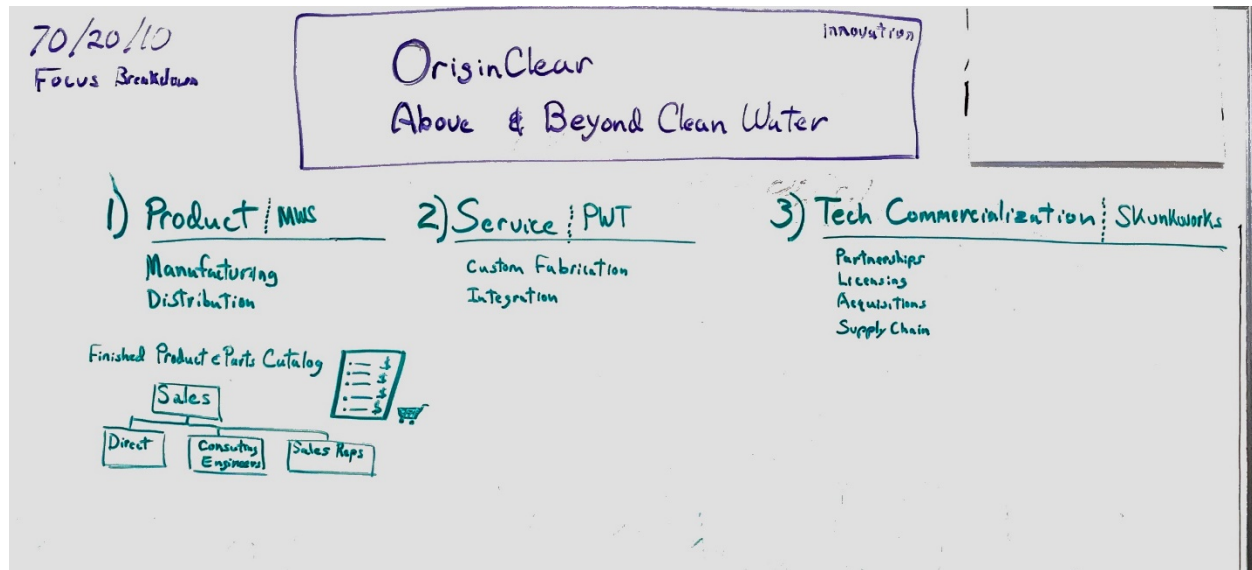 70/20/10
Focus Breakdown
Innovation
OriginClear
Above & Beyond Clean Water
1) Product | MWS
Manufacturing
Distribution
Finished Product & Parts Catalog
$
$
$
$
Sales
Direct
Consulting
Engineers
Sales Reps
2) Service | PWT
Custom Fabrication
Integration
3) Tech Commercialization | Skunkworks
Partnerships
Licensing
Acquisitions
Supply Chain